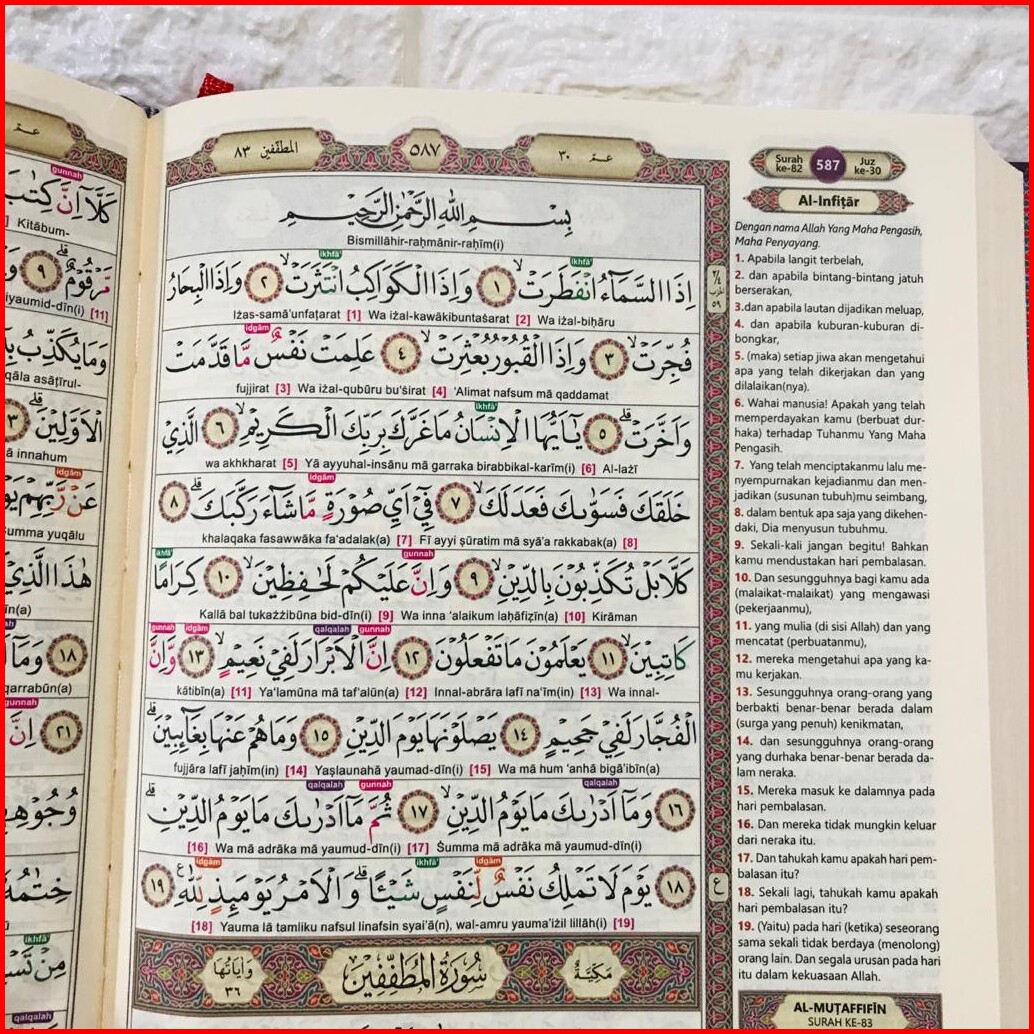 المطفّفين ٨٣
٥٨٧
عـمّ ٣٠
بِسْمِ اللّٰهِ الرَّحْمٰنِ الرَّحِيْمِ
Bismillāhir-raḥmānir-raḥīm(i)
ikhfā' ikhfā'
اِذَا السَّمَاۤءُ انْفَطَرَتْۙ ١ وَاِذَا الْكَوَاكِبُ انْتَثَرَتْۙ ٢ وَاِذَا الْبِحَارُ
Iżas-samā'unfaṭarat [1] Wa iżal-kawākibuntaṡarat [2] Wa iżal-biḥāru
idgām
فُجِّرَتْۙ ٣ وَاِذَا الْقُبُوْرُ بُعْثِرَتْۙ ٤ عَلِمَتْ نَفْسٌ مَّا قَدَّمَتْ
fujjirat [3] Wa iżal-qubūru bu'ṡirat [4] 'Alimat nafsum mā qaddamat
ikhfā'
وَاَخَّرَتْۗ ٥ يٰٓاَيُّهَا الْاِنْسَانُ مَا غَرَّكَ بِرَبِّكَ الْكَرِيْمِۙ ٦ الَّذِيْ
wa akhkharat [5] Yā ayyuhal-insānu mā garraka birabbikal-karīm(i) [6] Al-lażī
idgām
خَلَقَكَ فَسَوّٰىكَ فَعَدَلَكَۙ ٧ فِيْٓ اَيِّ صُوْرَةٍ مَّا شَاۤءَ رَكَّبَكَۗ ٨
khalaqaka fasawwāka fa'adalak(a) [7] Fī ayyi ṣūratim mā syā'a rakkabak(a) [8]
gunnah ikhfā'
كَلَّا بَلْ تُكَذِّبُوْنَ بِالدِّيْنِۙ ٩ وَاِنَّ عَلَيْكُمْ لَحٰفِظِيْنَۙ ١٠ كِرَامًا
Kallā bal tukażżibūna bid-dīn(i) [9] Wa inna 'alaikum laḥāfiẓīn(a) [10] Kirāman
gunnah idgām qalqalah gunnah
كَاتِبِيْنَۙ ١١ يَعْلَمُوْنَ مَا تَفْعَلُوْنَ ١٢ اِنَّ الْاَبْرَارَ لَفِيْ نَعِيْمٍۙ ١٣ وَّاِنَّ
kātibīn(a) [11] Ya'lamūna mā taf'alūn(a) [12] Innal-abrāra lafī na'īm(in) [13] Wa innal-
الْفُجَّارَ لَفِيْ جَحِيْمٍ ١٤ يَصْلَوْنَهَا يَوْمَ الدِّيْنِ ١٥ وَمَا هُمْ عَنْهَا بِغَاۤىِٕبِيْنَۗ
fujjāra lafī jaḥīm(in) [14] Yaṣlaunahā yaumad-dīn(i) [15] Wa mā hum 'anhā bigā'ibīn(a)
qalqalah gunnah qalqalah
١٦ وَمَآ اَدْرٰىكَ مَا يَوْمُ الدِّيْنِۙ ١٧ ثُمَّ مَآ اَدْرٰىكَ مَا يَوْمُ الدِّيْنِۗ
[16] Wa mā adrāka mā yaumud-dīn(i) [17] Ṡumma mā adrāka mā yaumud-dīn(i)
idgām ikhfā' idgām
١٨ يَوْمَ لَا تَمْلِكُ نَفْسٌ لِّنَفْسٍ شَيْـًٔاۗ وَالْاَمْرُ يَوْمَىِٕذٍ لِّلّٰهِ ࣖ ١٩
[18] Yauma lā tamliku nafsul linafsin syai'ā(n), wal-amru yauma'iżil lillāh(i) [19]
مَكِّيَّةٌ
سُوْرَةُ الْمُطَفِّفِيْنَ
وَاٰيَاتُهَا ٣٦
Surah ke-82 587 Juz ke-30
Al-Infiṭār
Dengan nama Allah Yang Maha Pengasih,
Maha Penyayang.
1. Apabila langit terbelah,
2. dan apabila bintang-bintang jatuh
berserakan,
3.dan apabila lautan dijadikan meluap,
4. dan apabila kuburan-kuburan di-
bongkar,
5. (maka) setiap jiwa akan mengetahui
apa yang telah dikerjakan dan yang
dilalaikan(nya).
6. Wahai manusia! Apakah yang telah
memperdayakan kamu (berbuat dur-
haka) terhadap Tuhanmu Yang Maha
Pengasih.
7. Yang telah menciptakanmu lalu me-
nyempurnakan kejadianmu dan men-
jadikan (susunan tubuh)mu seimbang,
8. dalam bentuk apa saja yang dikehen-
daki, Dia menyusun tubuhmu.
9. Sekali-kali jangan begitu! Bahkan
kamu mendustakan hari pembalasan.
10. Dan sesungguhnya bagi kamu ada
(malaikat-malaikat) yang mengawasi
(pekerjaanmu),
11. yang mulia (di sisi Allah) dan yang
mencatat (perbuatanmu),
12. mereka mengetahui apa yang ka-
mu kerjakan.
13. Sesungguhnya orang-orang yang
berbakti benar-benar berada dalam
(surga yang penuh) kenikmatan,
14. dan sesungguhnya orang-orang
yang durhaka benar-benar berada da-
lam neraka.
15. Mereka masuk ke dalamnya pada
hari pembalasan.
16. Dan mereka tidak mungkin keluar
dari neraka itu.
17. Dan tahukah kamu apakah hari pem-
balasan itu?
18. Sekali lagi, tahukah kamu apakah
hari pembalasan itu?
19. (Yaitu) pada hari (ketika) seseorang
sama sekali tidak berdaya (menolong)
orang lain. Dan segala urusan pada hari
itu dalam kekuasaan Allah.
AL-MUṬAFFIFĪN
SURAH KE-83
عـمّ
gunnah
كَلَّآ اِنَّ كِتٰبَ
Kitābum-
مَّرْقُوْمٌۗ ٩
yaumid-dīn(i) [11]
وَمَا يُكَذِّبُ
qāla asāṭīrul-
الْاَوَّلِيْنَۗ
innahum
idgām
عَنْ رَّبِّهِمْ
Ṡumma yuqālu
هٰذَا الَّذِيْ
١٨ وَمَآ
qarrabūn(a)
gunnah
٢١ اِنَّ
خِتٰمُهٗ
ikhfā'
مِنْ
qalqalah